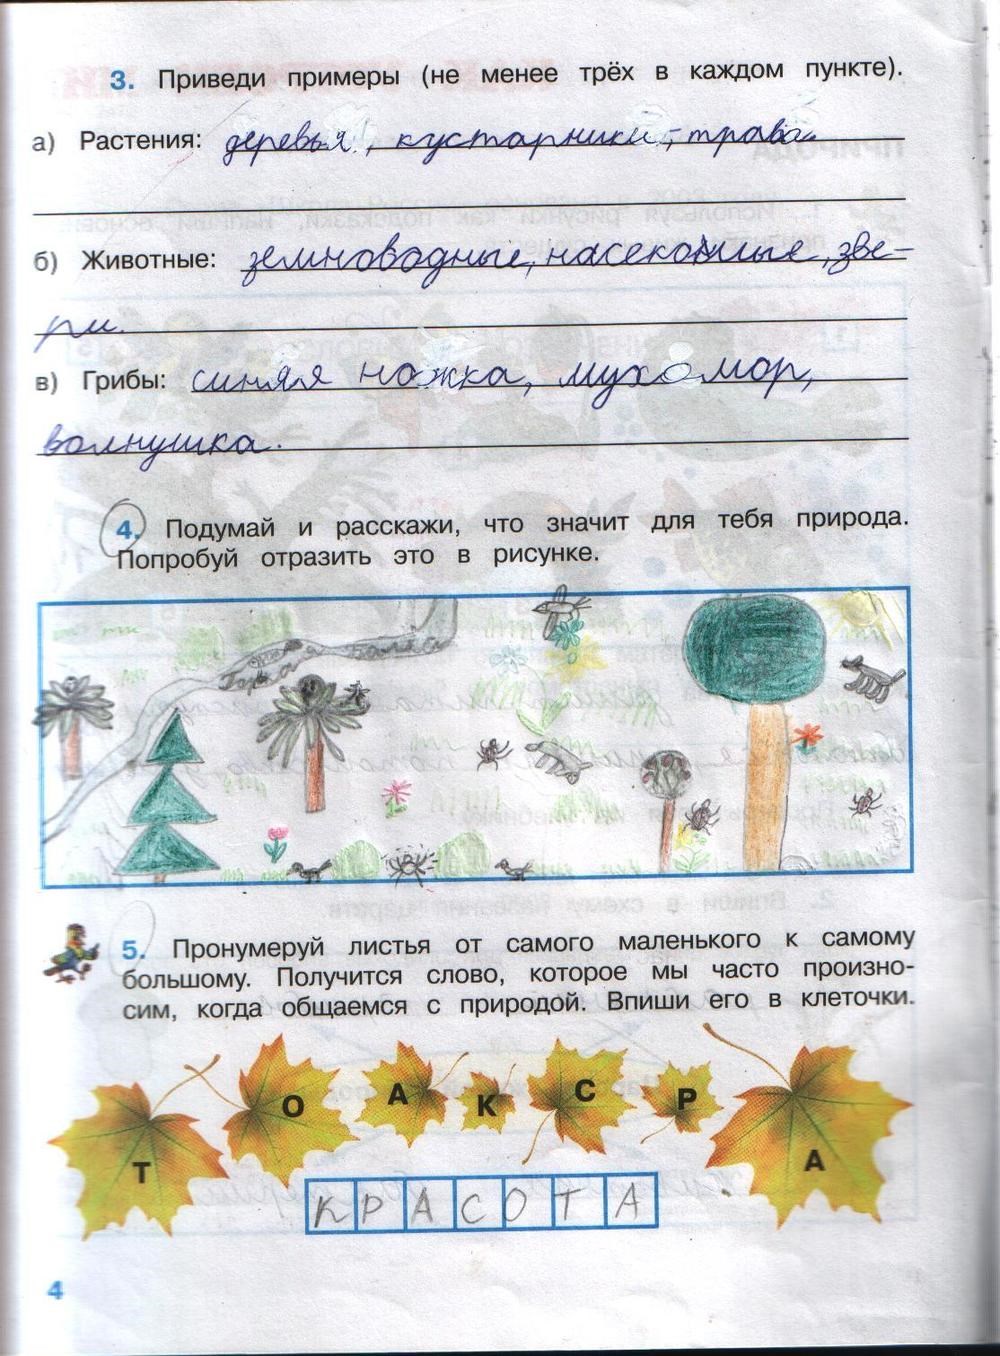 3. Приведи примеры (не менее трёх в каждом пункте).
а) Растения: деревья, кустарники, трава.
б) Животные: земноводные, насекомые, зве-
ри.
в) Грибы: синяя ножка, мухомор,
волнушка.
4. Подумай и расскажи, что значит для тебя природа.
Попробуй отразить это в рисунке.
5. Пронумеруй листья от самого маленького к самому
большому. Получится слово, которое мы часто произно-
сим, когда общаемся с природой. Впиши его в клеточки.
Т О А К С Р А
КРАСОТА
4